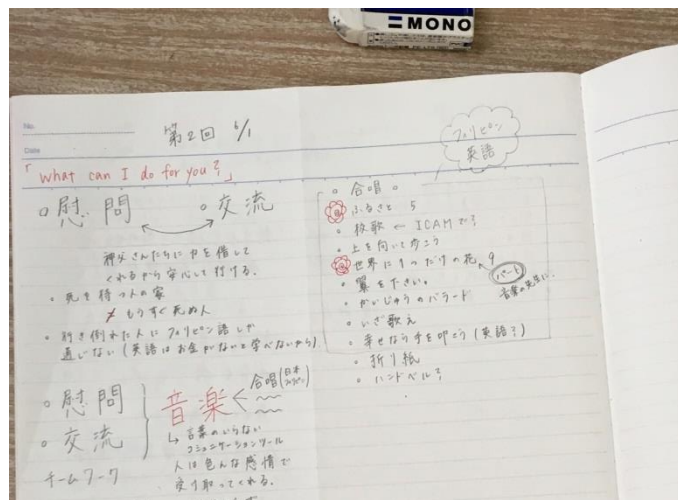 MONO
No.
Date
第2回 6/1
「what can I do for you?」
。慰問
。交流
神父さんたちに力を借して
くれるから安心して行ける。
・死を待つ人の家
≠ もうすぐ死ぬ人
・行き倒れた人にフィリピン語しか
通じない(英語はお金がないと学べないから)
・慰問
・交流
チームワーク
音楽
合唱(日本
↳ 言葉のいらない
コミュニケーションツール
人は色んな感情で
受け取ってくれる。
フィリピン
英語
。合唱。
ふるさと 5
・校歌 ← ICAMで?
・上を向いて歩こう
世界に1つだけの花 9
パート
音楽の先生に。
・翼を下さい。
・かいじゅうのバラード
・いざ歌え
・幸せなら手を叩こう(英語?)
・折り紙
・ハンドベル?